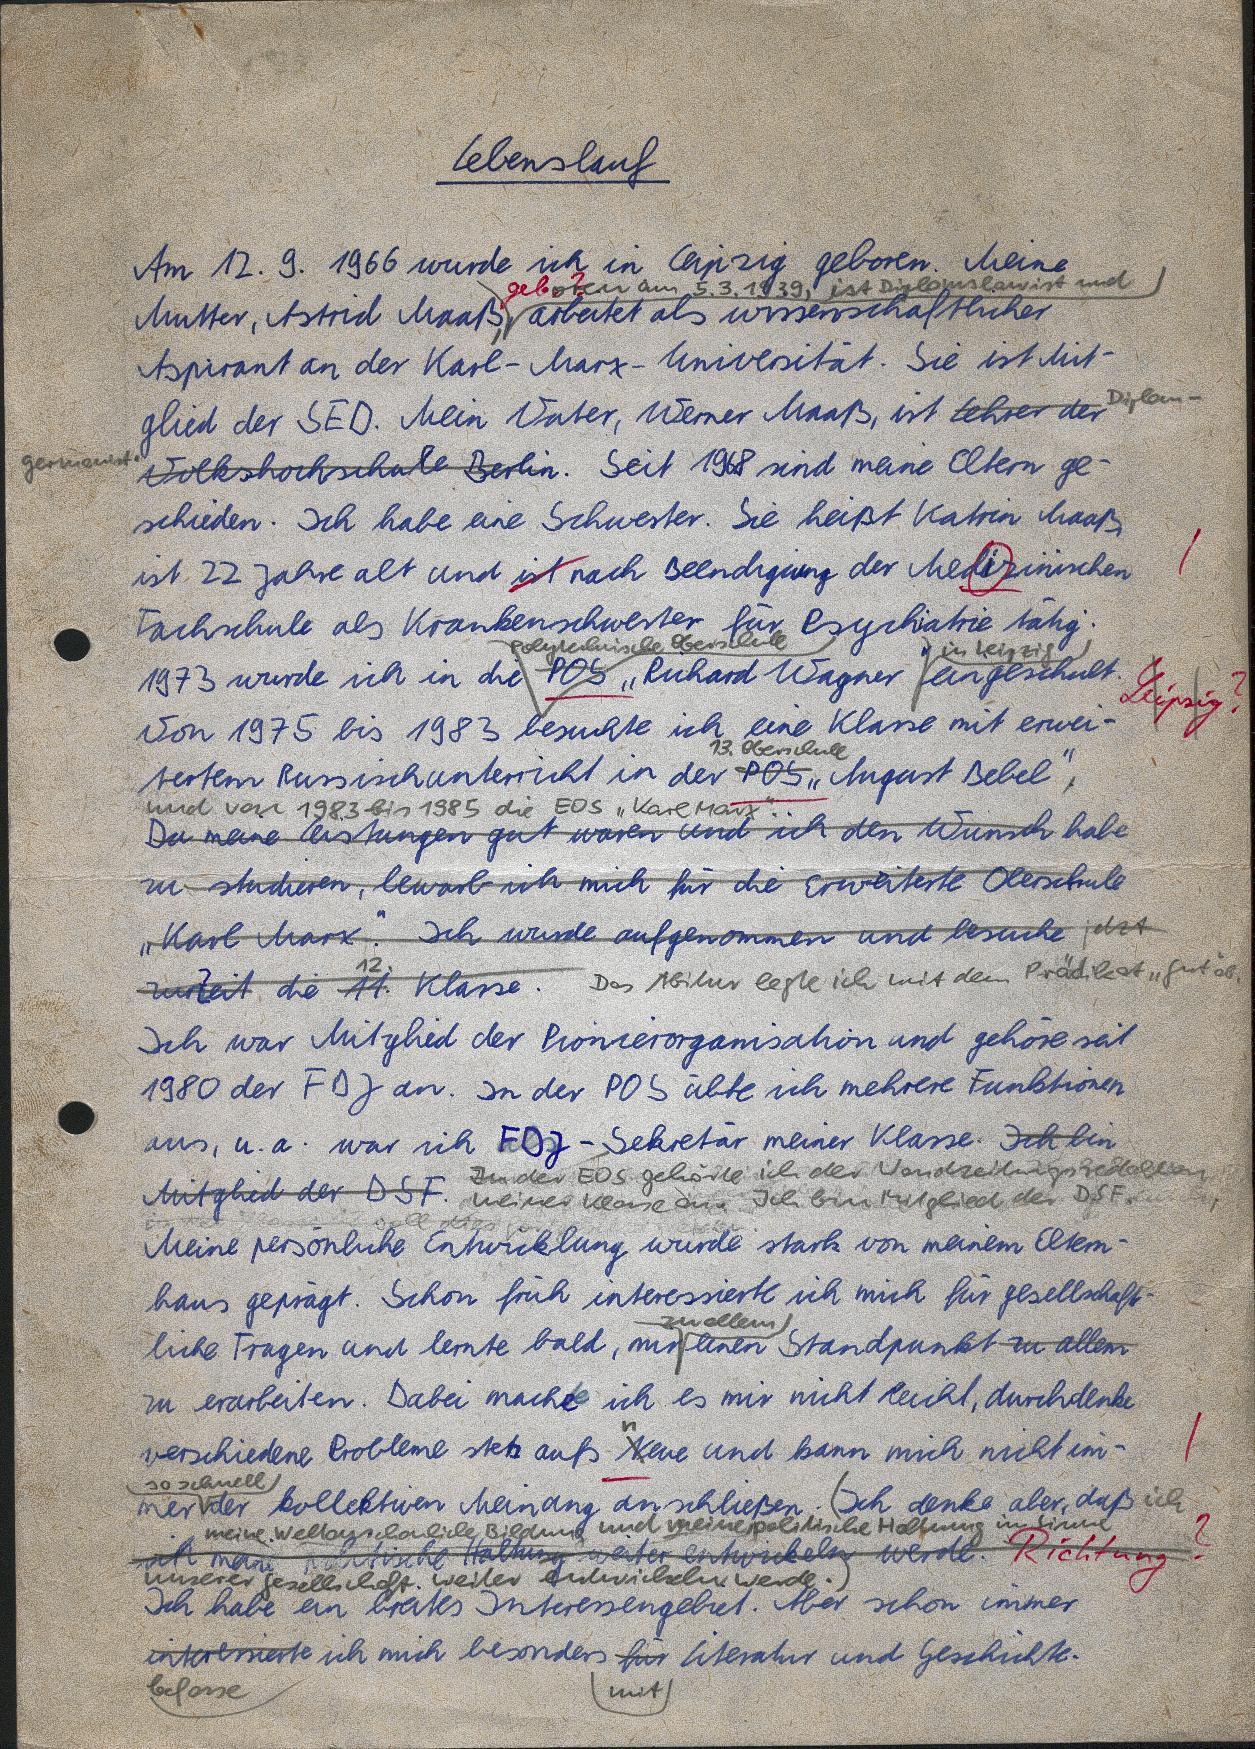 Lebenslauf
Am 12. 9. 1966 wurde ich in Leipzig geboren. Meine
geb.? oren am 5.3.1939, ist Diplomslawist und
Mutter, Astrid Maaß, arbeitet als wissenschaftlicher
Aspirant an der Karl-Marx-Universität. Sie ist Mit-
glied der SED. Mein Vater, Werner Maaß, ist Lehrer der Diplom-
germanist. Volkshochschule Berlin. Seit 1968 sind meine Eltern ge-
schieden. Ich habe eine Schwester. Sie heißt Katrin Maaß,
ist 22 Jahre alt und ist nach Beendigung der Medizinischen !
Fachschule als Krankenschwester für Psychiatrie tätig.
Polytechnische Oberschule in Leipzig
1973 wurde ich in die POS „Richard Wagner" eingeschult. Leipzig?
Von 1975 bis 1983 besuchte ich eine Klasse mit erwei-
13. Oberschule
tertem Russischunterricht in der POS „August Bebel",
und von 1983 bis 1985 die EOS „Karl Marx".
Da meine Leistungen gut waren und ich den Wunsch habe
zu studieren, bewarb ich mich für die Erweiterte Oberschule
„Karl Marx". Ich wurde aufgenommen und besuche jetzt
12.
zurZeit die 11. Klasse. Das Abitur legte ich mit dem Prädikat „gut" ab.
Ich war Mitglied der Pionierorganisation und gehöre seit
1980 der FDJ an. In der POS übte ich mehrere Funktionen
aus, u. a. war ich FDJ-Sekretär meiner Klasse. Ich bin
In der EOS gehörte ich der Wandzeitungsredaktion
Mitglied der DSF. meiner Klasse an. Ich bin Mitglied der DSF.
Meine persönliche Entwicklung wurde stark von meinem Eltern-
haus geprägt. Schon früh interessierte ich mich für gesellschaft-
zu allem
liche Fragen und lernte bald, mir einen Standpunkt zu allem
zu erarbeiten. Dabei mache ich es mir nicht leicht, durchdenke
n
verschiedene Probleme stets aufs Neue und kann mich nicht im- !
so schnell
mer der kollektiven Meinung anschließen. (Ich denke aber, daß ich
meine weltanschauliche Bildung und meine politische Haltung im Sinne
ich meine politische Haltung weiter entwickeln werde. Richtung?
unserer Gesellschaft weiter entwickeln werde.)
Ich habe ein breites Interessengebiet. Aber schon immer
interessierte ich mich besonders für Literatur und Geschichte.
befasse mit